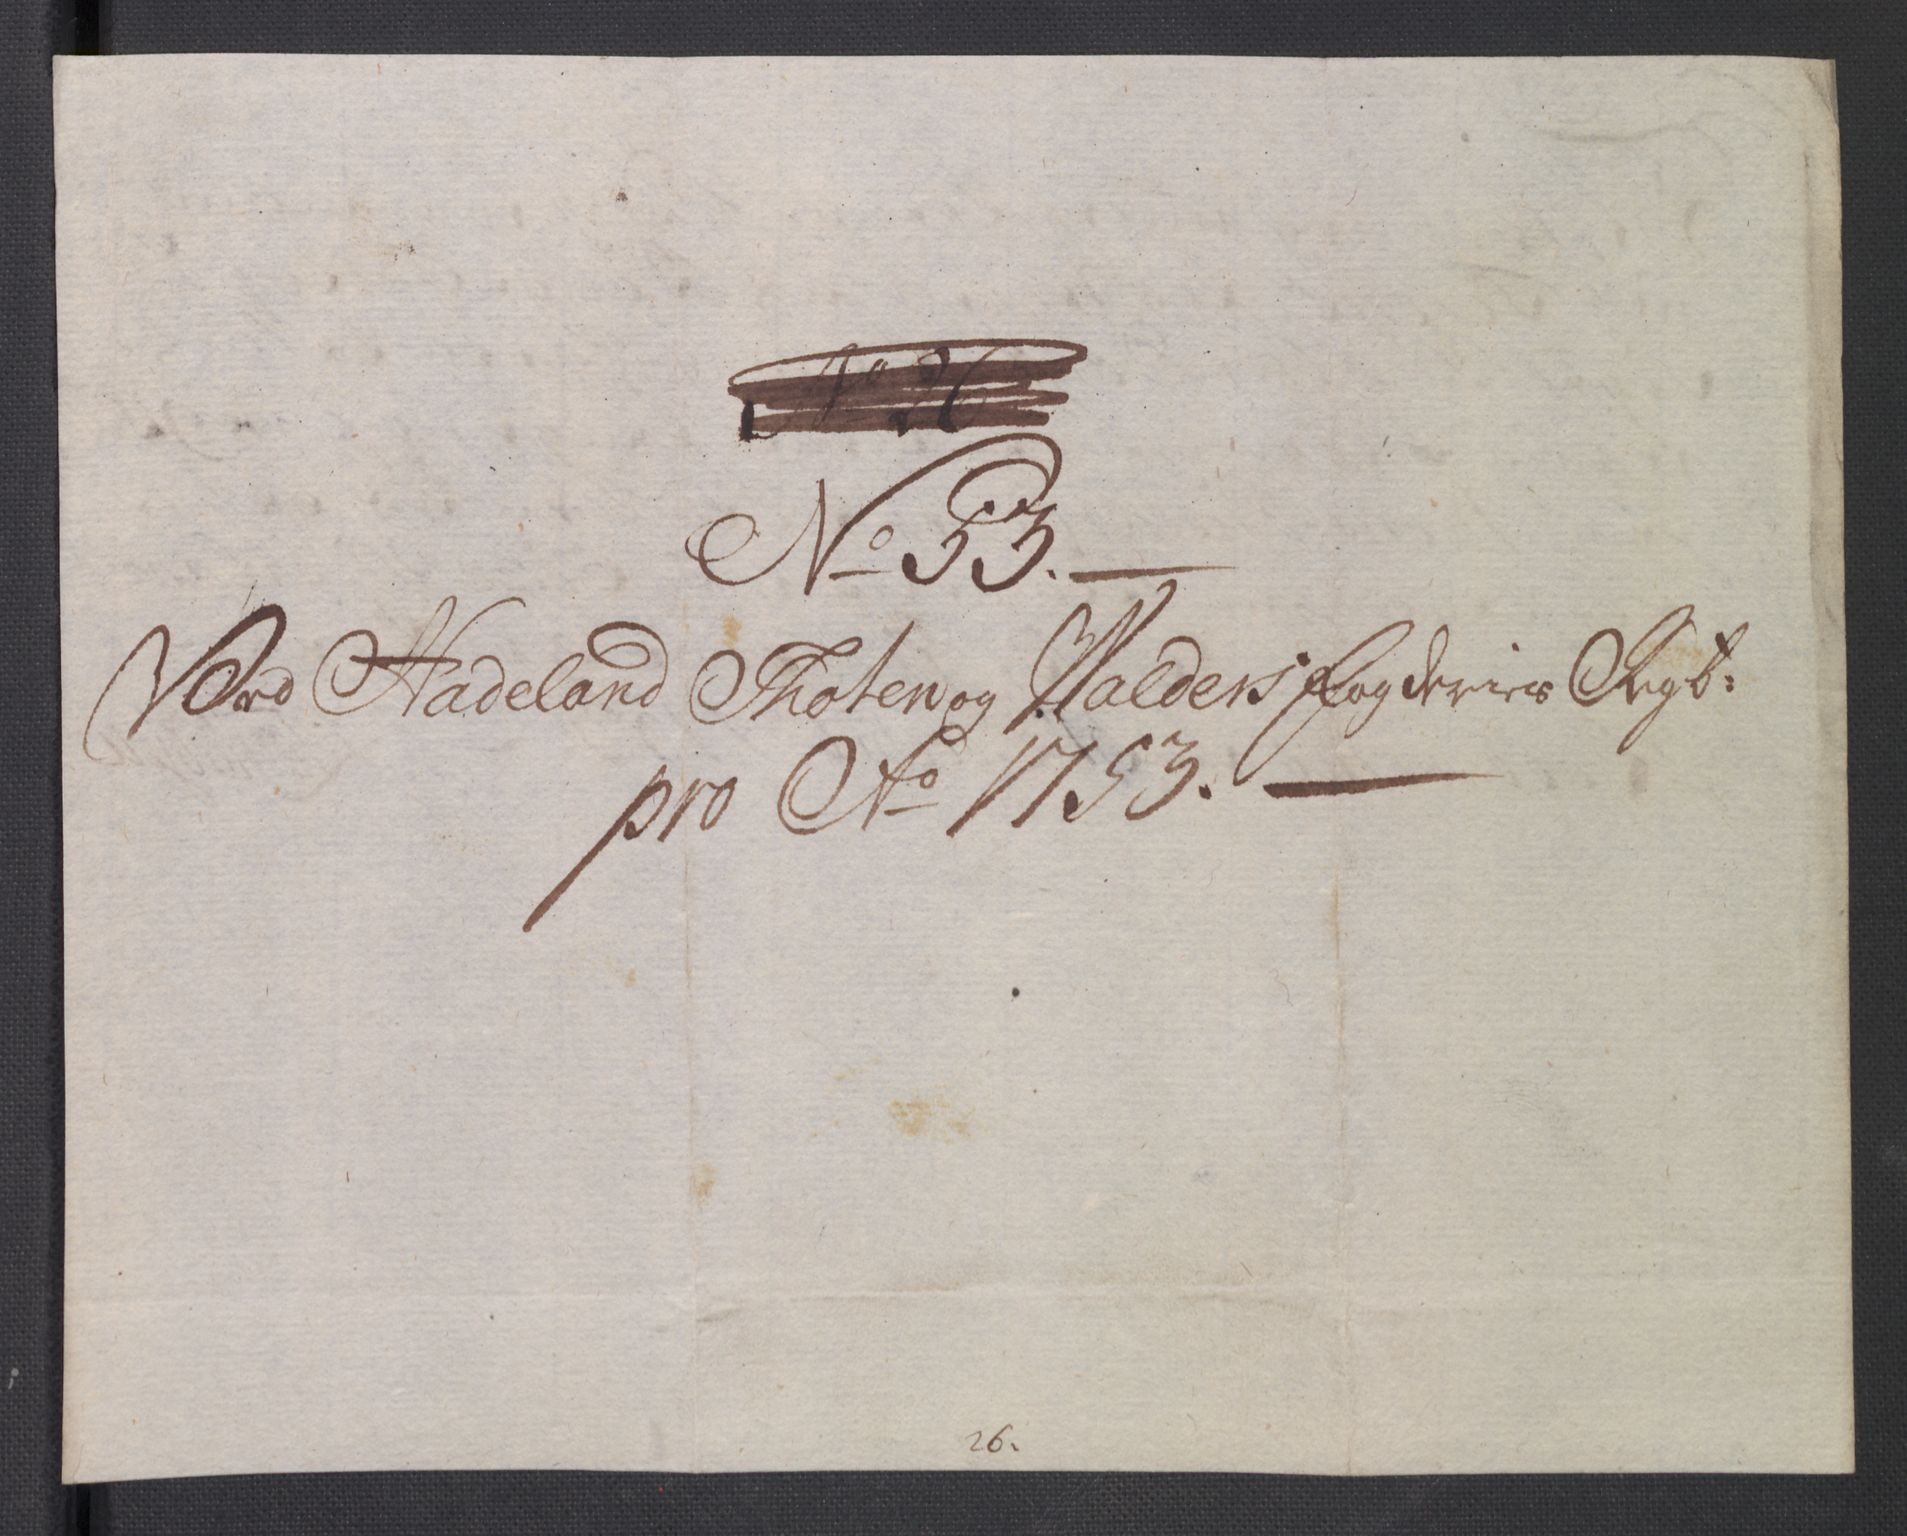 No 26
No 53.
Ved Hadeland Thoten og Walders Fogderies Regb:
pro Ao 1753.
26.